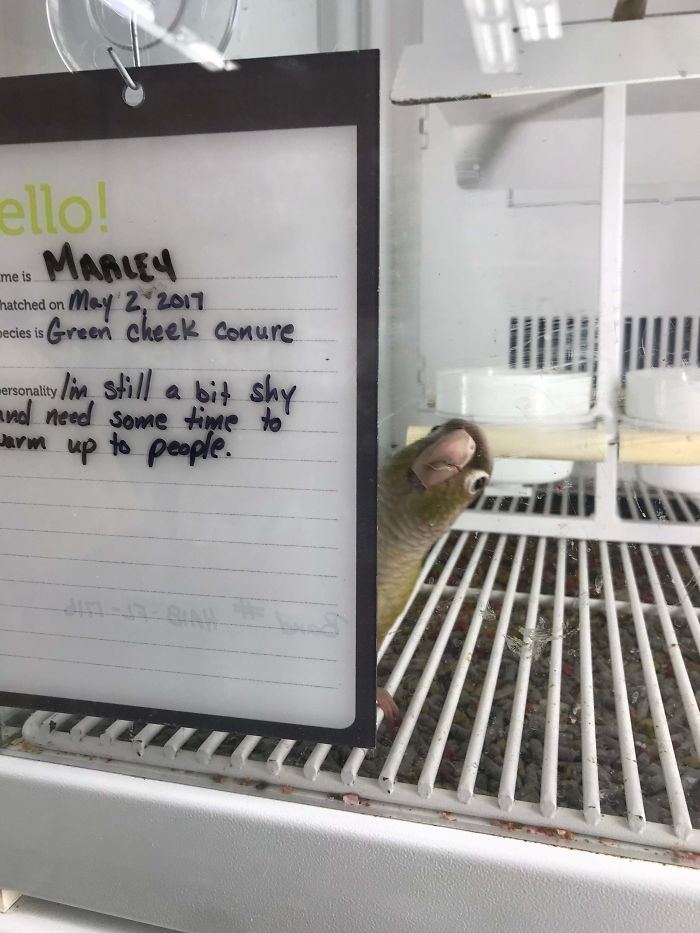 ello!
me is MARLEY
hatched on May 2, 2017
ecies is Green cheek conure
ersonality I'm still a bit shy
and need some time to
warm up to people.